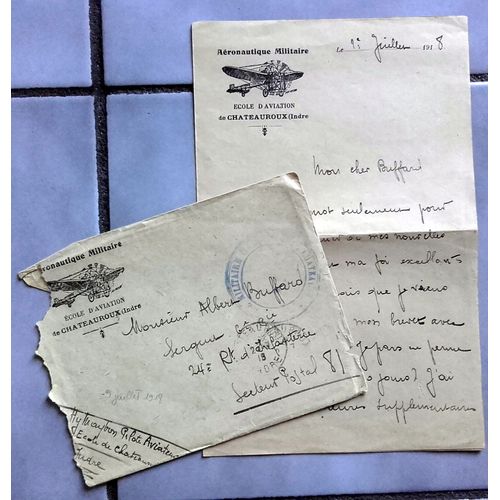 Aéronautique Militaire
ECOLE D'AVIATION
de CHATEAUROUX (Indre
Le 1er Juillet 1918.
Mon cher Buffard
mot seulement pour
de mes nouvelles
ma foi excellents
que je viens
mon brevet avec
Je pars en perme
jours? J'ai
supplémentaires
Aéronautique Militaire
ÉCOLE D'AVIATION
de CHATEAUROUX (Indre
Monsieur Albert Buffard
Sergent
24e Rt d'Infanterie
Secteur Postal 81
9 juillet 1918
Pilote Aviateur
Ecole de Chateauroux
Indre